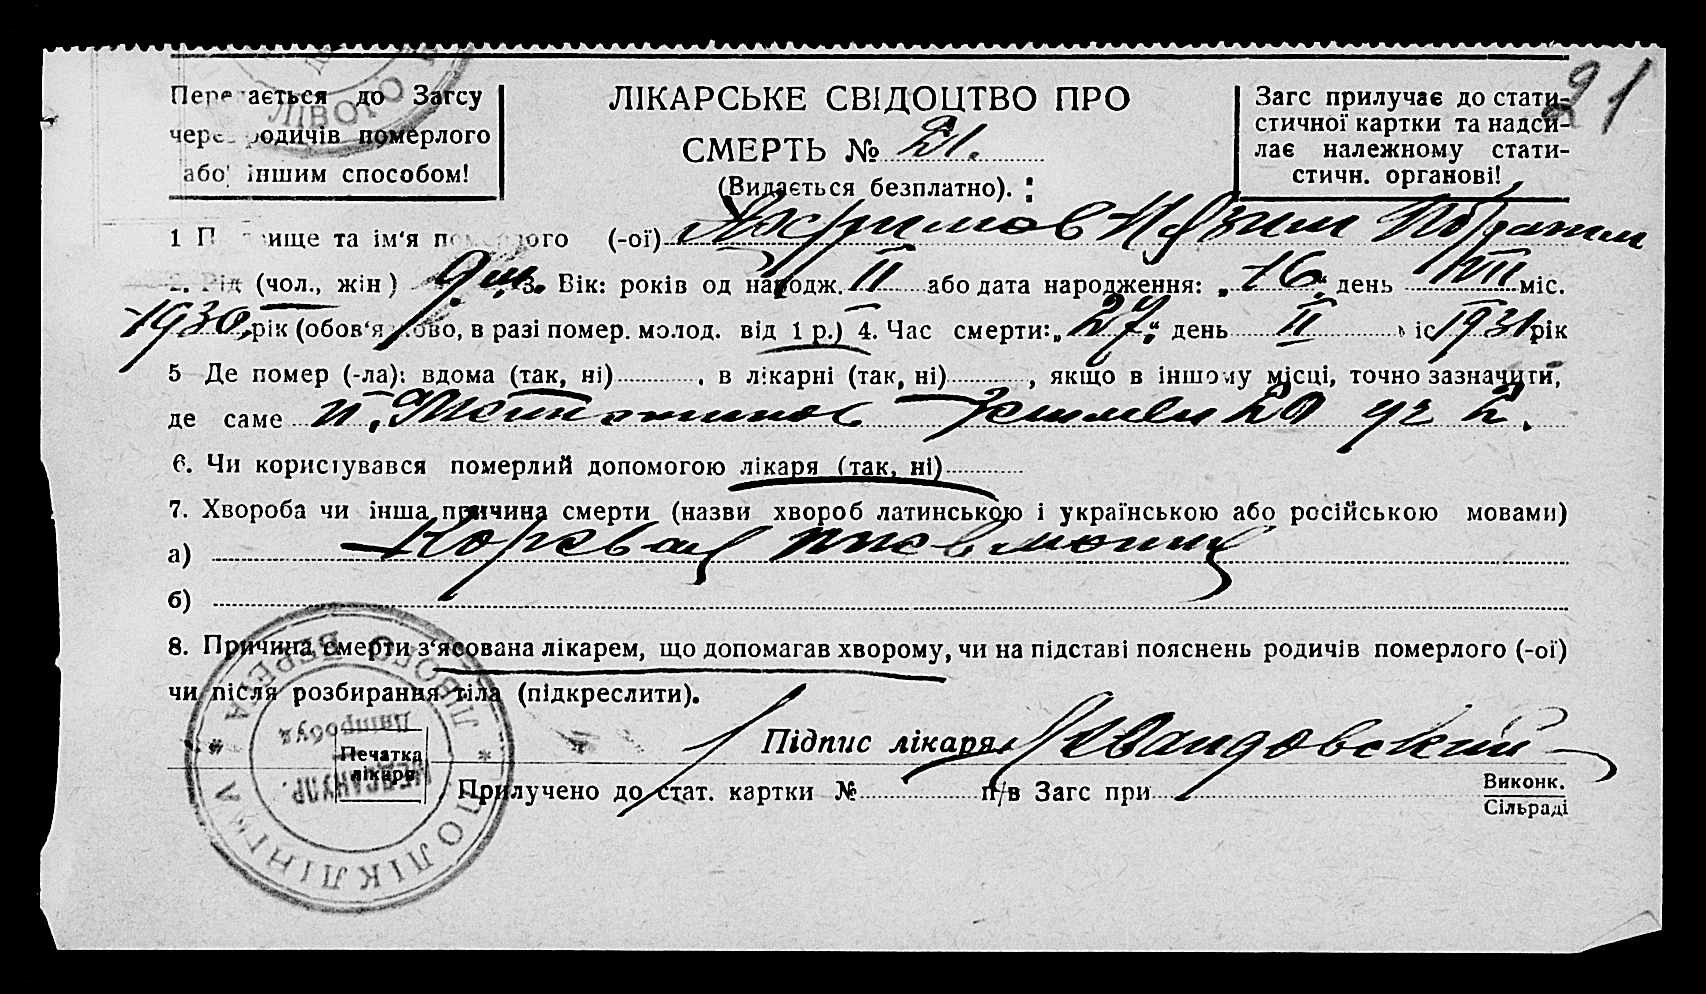 21
Передається до Загсу
через родичів померлого
або іншим способом!
ЛІКАРСЬКЕ СВІДОЦТВО ПРО
СМЕРТЬ № 21.
(Видається безплатно).
Загс прилучає до стати-
стичної картки та надси-
лає належному стати-
стичн. органові!
1 Прізвище та ім'я померлого (-ої)
2. Рід (чол., жін) 3. Вік: років од народж. II або дата народження: „16“ день VII міс.
1930 рік (обов'язково, в разі помер. молод. від 1 р.) 4. Час смерти: „27“ день II міс 1931 рік
5 Де помер (-ла): вдома (так, ні) , в лікарні (так, ні) , якщо в іншому місці, точно зазначити,
де саме
6. Чи користувався померлий допомогою лікаря (так, ні)
7. Хвороба чи інша причина смерти (назви хвороб латинською і українською або російською мовами)
а) Коревая пневмония
б)
8. Причина смерти з'ясована лікарем, що допомагав хворому, чи на підставі пояснень родичів померлого (-ої)
чи після розбирання тіла (підкреслити).
Підпис лікаря
Печатка
лікаря
Прилучено до стат. картки № п/в Загс при
Виконк.
Сільраді
ПОЛІКЛІНІКА ЛІВОГО БЕРЕГА
Дніпробуд
МЕДСАНУПР.
ЛІВОГО